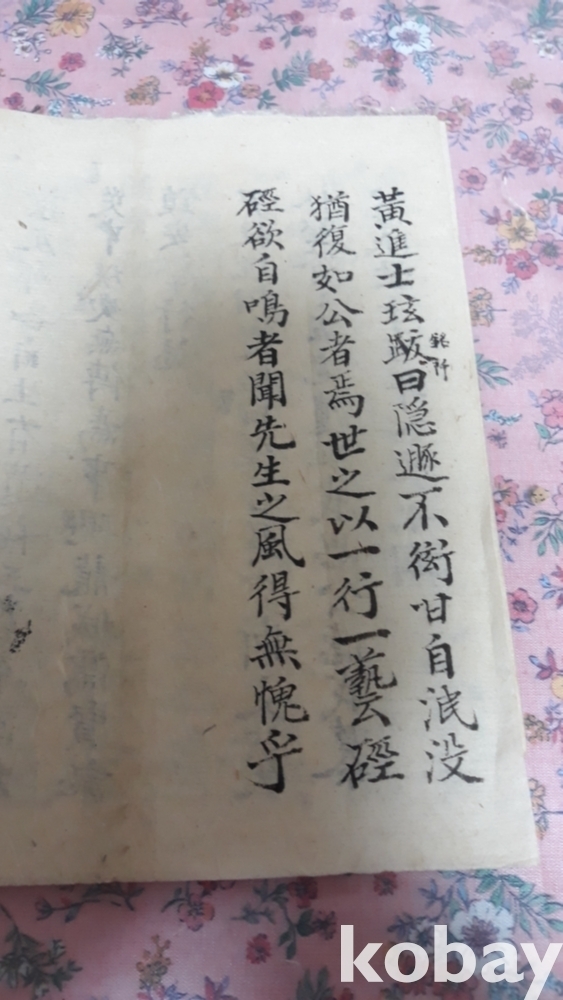 黃進士玹跋曰隐遯不衒甘自泯没
猶復如公者焉世之以一行一藝硜
硜欲自鳴者聞先生之風得無愧乎
kobay